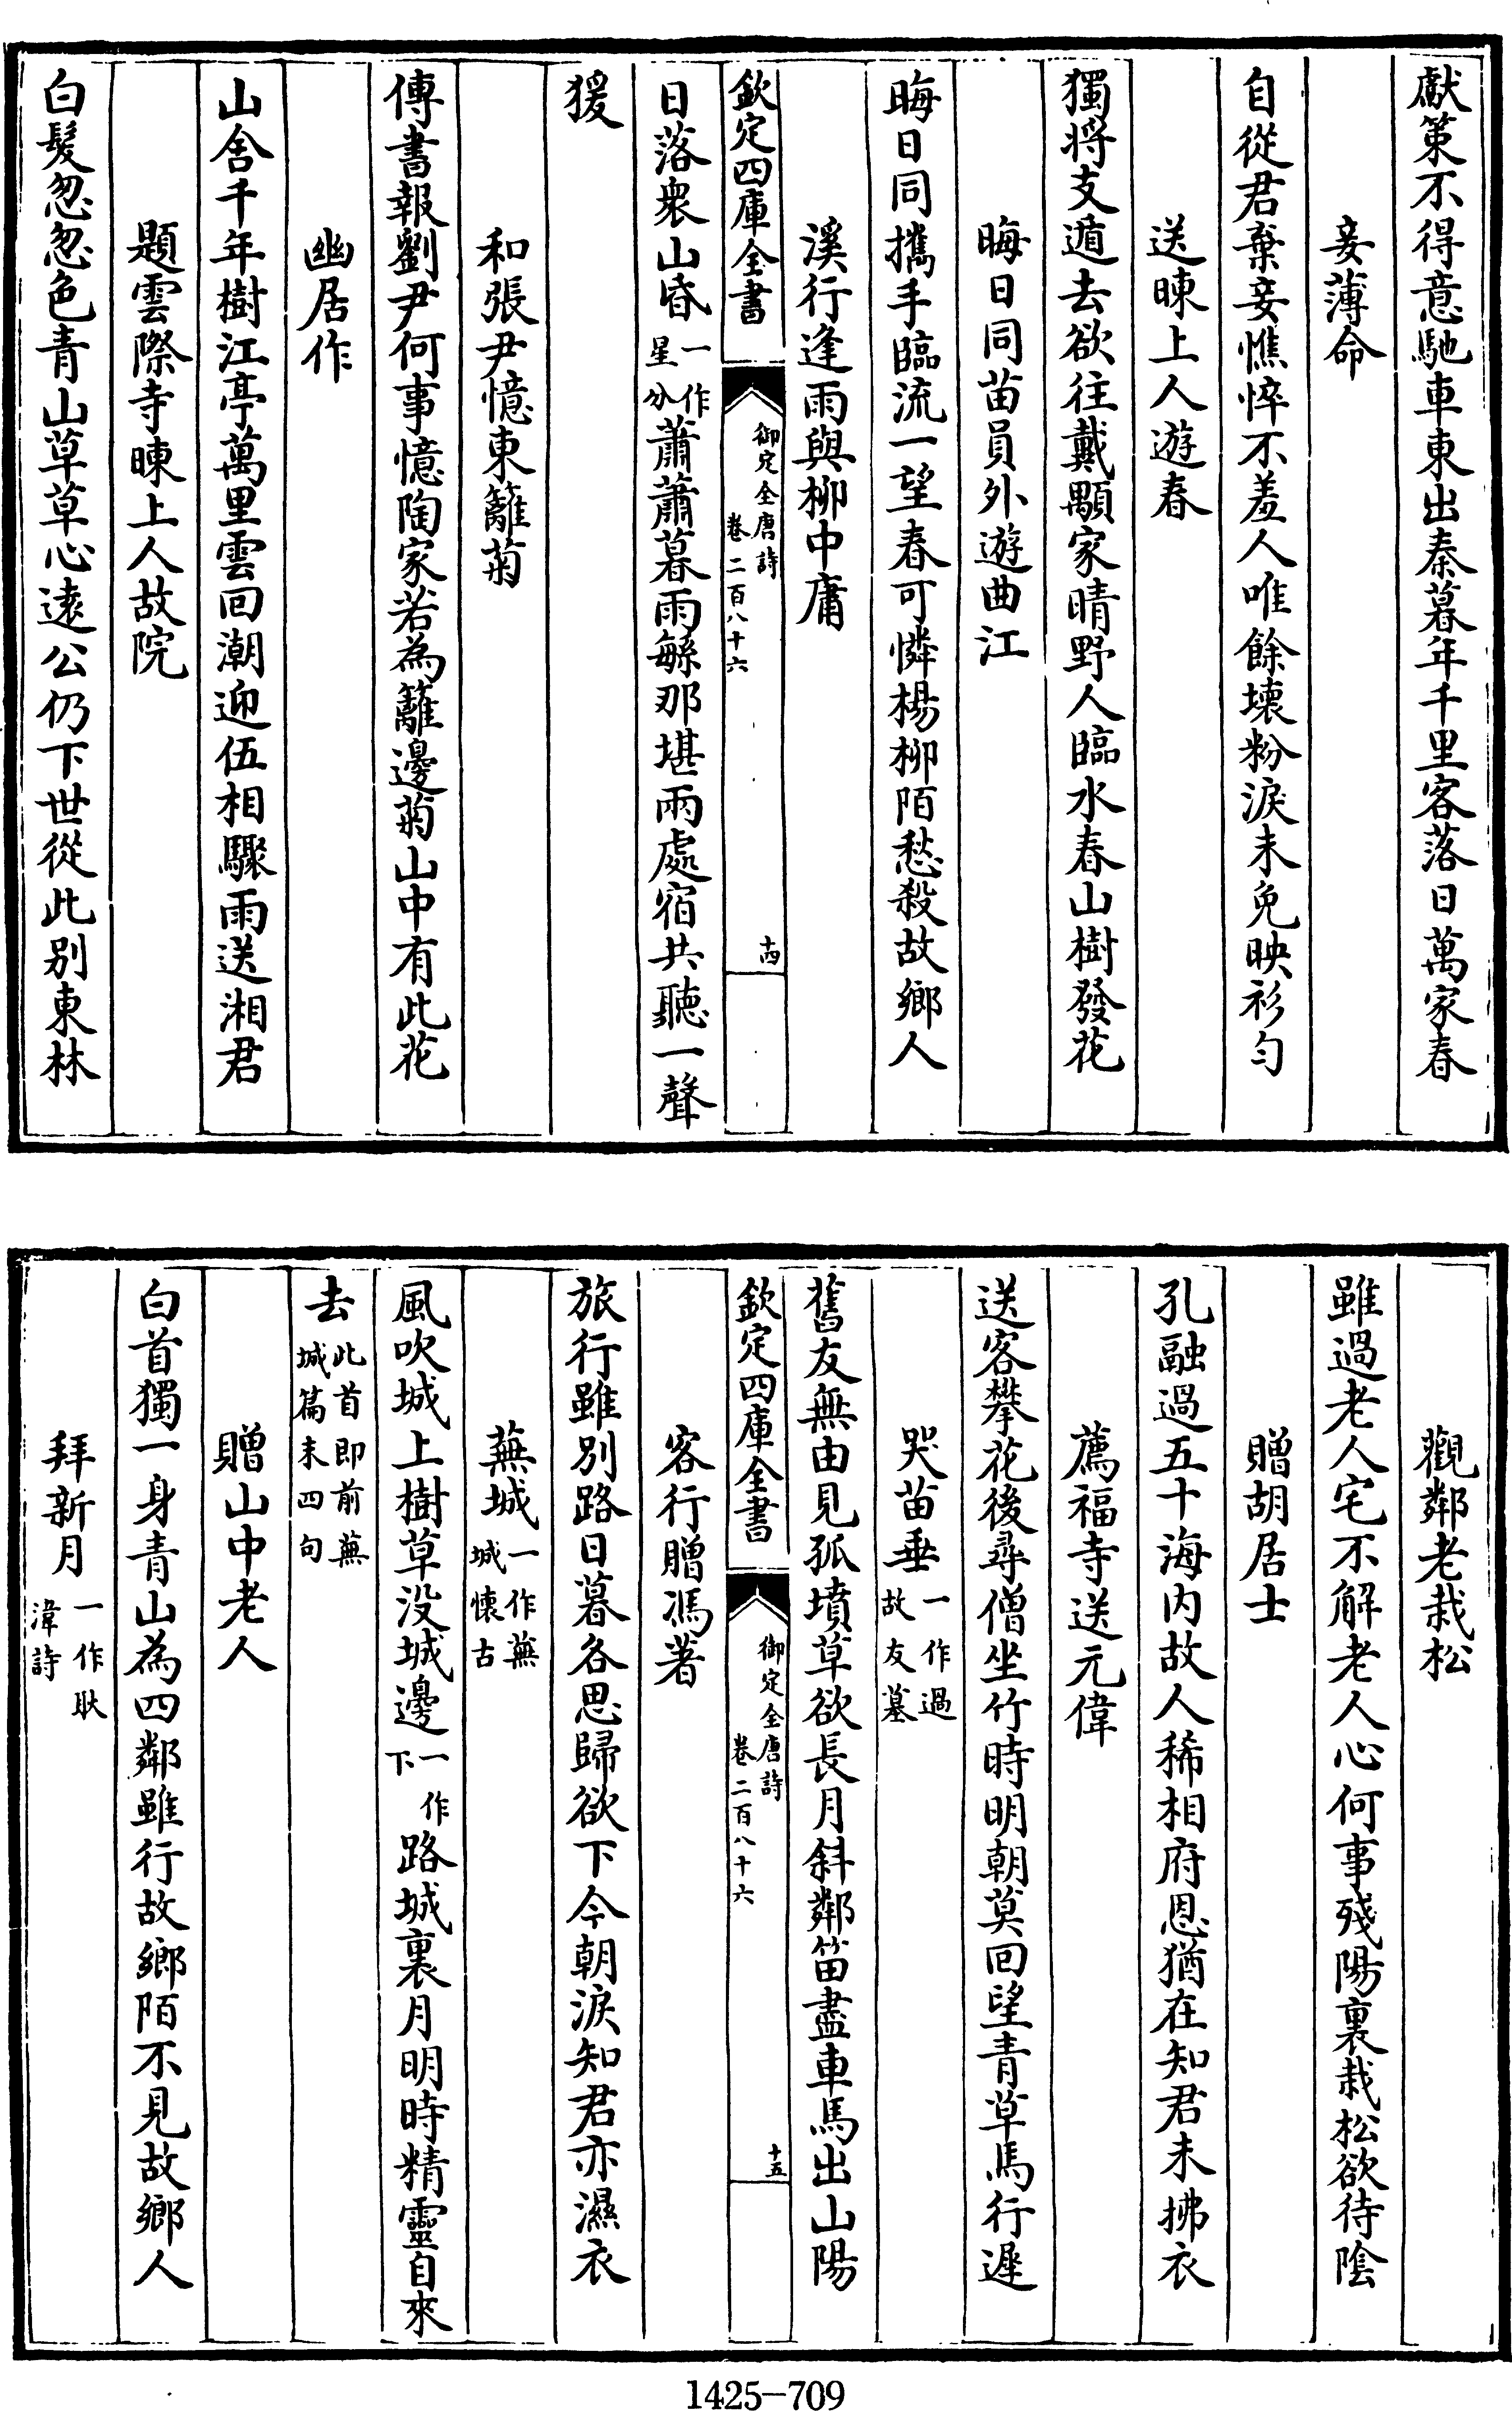 獻策不得意馳車東出秦暮年千里客落日萬家春
妾薄命
自從君棄妾憔悴不羞人唯餘壊粉淚未免映衫勻
送暕上人遊春
獨將支遁去欲往戴顒家晴野人臨水春山樹發花
晦日同苗員外遊曲江
晦日同攜手臨流一望春可憐楊柳陌愁殺故鄉人
溪行逢雨與柳中庸
欽定四庫全書
御定全唐詩
卷二百八十六
十四
日落衆山昏一作星分蕭蕭暮雨繇那堪兩處宿共聽一聲
猨
和張尹憶東籬菊
傳書報劉尹何事憶陶家若為籬邊菊山中有此花
幽居作
山舍千年樹江亭萬里雲回潮迎伍相驟雨送湘君
題雲際寺暕上人故院
白髮忽忽色青山草草心遠公仍下世從此別東林
觀鄰老栽松
雖過老人宅不解老人心何事殘陽裏栽松欲待陰
贈胡居士
孔融過五十海内故人稀相府恩猶在知君未拂衣
薦福寺送元偉
送客攀花後尋僧坐竹時明朝莫回望青草馬行遲
哭苗垂一作過故友墓
舊友無由見孤墳草欲長月斜鄰笛盡車馬出山陽
欽定四庫全書
御定全唐詩
卷二百八十六
十五
客行贈馮著
旅行雖別路日暮各思歸欲下今朝淚知君亦濕衣
蕪城一作蕪城懷古
風吹城上樹草没城邊一作下路城裏月明時精靈自來
去此首即前蕪城篇末四句
贈山中老人
白首獨一身青山為四鄰雖行故鄉陌不見故鄉人
拜新月一作耿湋詩
1425-709